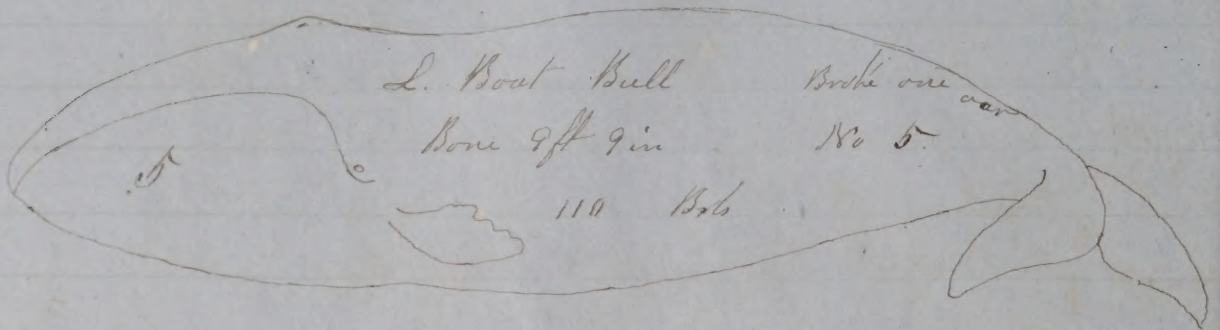 L. Boat Bull Broke one oar
Bone 9ft 9in No 5
5
110 Bbls